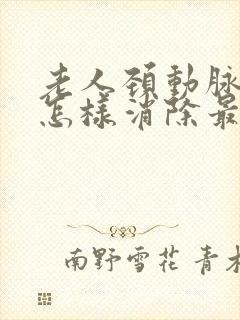 老人頚動脉
怎樣消除最
南野雪花 青木